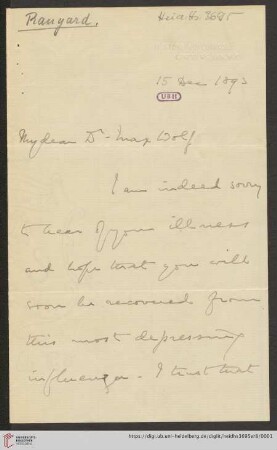 Ranyard.
Heid. Hs. 3695
15 Dec 1893
UBH
My dear Dr. Max Wolf
I am indeed sorry
to hear of your illness
and hope that you will
soon be recovered from
this most depressing
influenza - I trust that
UNIVERSITÄTS-
BIBLIOTHEK
HEIDELBERG
https://digi.ub.uni-heidelberg.de/diglit/heidhs3695xr8/0001